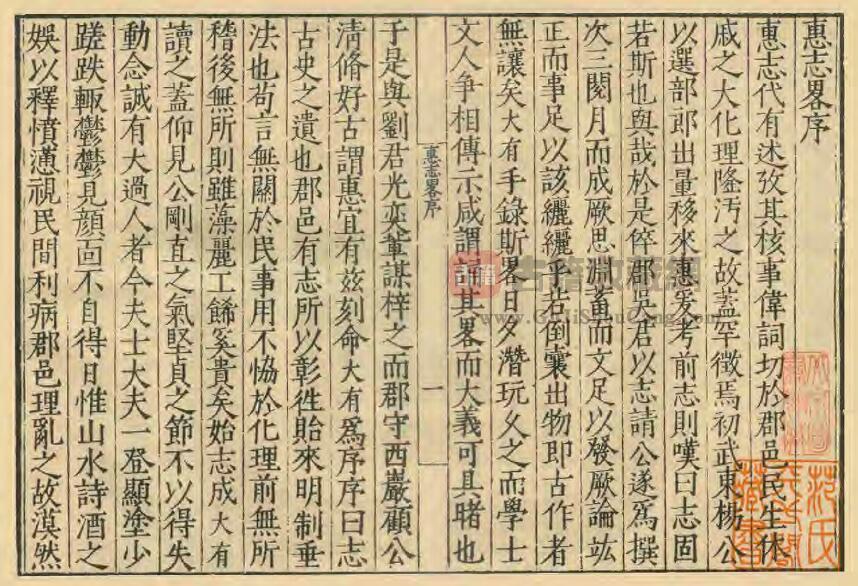 惠志畧序
惠志代有述攷其核事偉詞切於郡邑民生休
戚之大化理隆汚之故蓋罕徵焉初武東楊公
以選部郎出量移來惠爰考前志則嘆曰志固
若斯也與哉於是倅郡吳君以志請公遂爲撰
次三閱月而成厥思淵蓄而文足以發厥論竑
正而事足以該纚纚乎若倒囊出物即古作者
無讓矣大有手錄斯畧日夕潛玩久之而學士
文人爭相傳示咸謂誦其畧而大義可具睹也
惠志畧序
一
于是與劉君光奕輩謀梓之而郡守西巖顧公
淸脩好古謂惠宜有兹刻命大有爲序序曰志
古史之遺也郡邑有志所以彰徃貽來明制垂
法也茍言無關於民事用不恊於化理前無所
稽後無所則雖藻麗工餙奚貴矣始志成大有
讀之蓋仰見公剛直之氣堅貞之節不以得失
動念誠有大過人者今夫士大夫一登顯塗少
蹉跌輙鬱鬱見顏面不自得日惟山水詩酒之
娛以釋憤懣視民間利病郡邑理亂之故漠然
古籍收藏網
www.GuJiShuCang.com
范氏
藏書